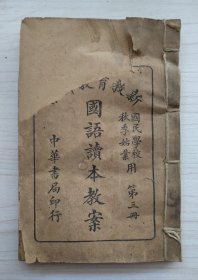 教育
國民學校
秋季始業
用 第三冊
國語讀本教案
中華書局印行